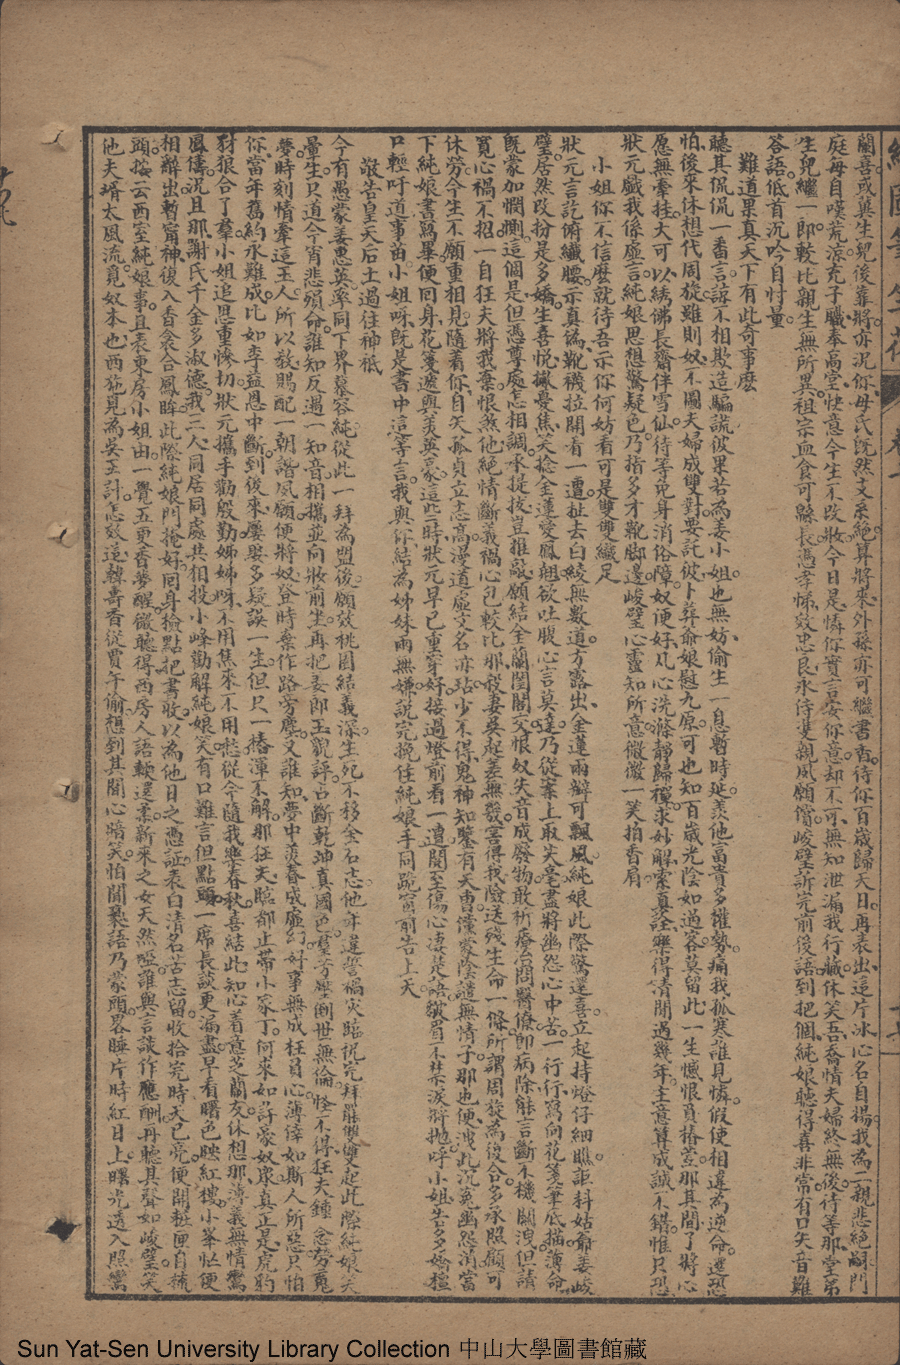 蘭喜或葉生兒後靠將亦況你母氏旣然支系絕算將來外孫亦可繼書香待你百歲歸天日再表出這片冰心名自揚我為二親悲絕嗣門
庭每自嘆荒涼充子職奉高堂快意今生不改妝今日是憐你實言安你意却不可無知泄漏我行藏休笑吾喬情夫婦終無後待等那堂弟
生兒繼一郎較比親生無所異祖宗血食可縣長憑孝悌效忠良永侍雙親夙願償峻璧訴完前後語到把個純娘聽得喜非常有口矢音難
答語低首沉吟自忖量
難道果真天下有此奇事麽
聽其侃侃一番言諒不相欺造騙謊彼果若為姜小姐也無妨偷生一息暫時延羨他富貴多權勢痛我孤寒誰見憐假使相違為逆命還恐
怕後來休想代周旋雖則奴不圖夫婦成雙對要託彼卜葬爺娘慰九原可也知百歲光陰如過客莫留此一生憾恨負椿萱那其間了將心
愿無牽挂大可以綉佛長齋伴雪仙待等免身消俗障奴便好凡心洗滌靜歸禪求妙解索真詮樂得清閒過幾年主意算成誠不錯惟只恐
狀元戲我係虛言純娘思想驚疑色乃指多才靴脚邊峻璧心靈知所意微微一笑拍香肩
小姐你不信麽就待吾示你何妨看可是雙雙纖足
狀元言訖俯纖腰示真為靴襪拉開看一遭扯去白綾無數道方露出金蓮兩瓣可飄風純娘此際驚還喜立起持燈仔細瞧詎料姑爺姜峻
璧居然改扮是多嬌生喜悅撇憂焦笑捻金蓮愛鳳翹欲吐腹心言莫達乃從案上取尖毫盡將幽怨心中苦一行行寫向花箋筆底描薄命
旣蒙加憫惻這個是但憑尊處怎相調承提拔豈推敲願結金蘭閨閣交恨奴失音成廢物敢祈療治問醫僚即病除能言斷不機關洩但請
寬心禍不招一自狂夫將我棄恨煞他絕情斷義禍心包較比那殺妻吳起差無幾害得我險送殘生命一條所謂周旋為後合多承照顧可
休勞今生不願重相見隨著你自矢孤貞立志高漫道虛文名亦玷少不得鬼神知鑒有天曹僅蒙陰譴無情子那也便洩此沉冤幽怨消當
下純娘書寫畢便回身花箋遞與美英豪這些時狀元早已重穿好接過燈前看一遭閱至傷心淒楚語皺眉不禁淚將抛呼小姐告多嬌檀
口輕吁道事苗小姐呀旣是書中這等言我與你結為姊妹兩無嫌說完挽住純娘手同跪窗前告上天
敬告皇天后土過往神祗
今有愚蒙姜思英率同下界慕容純從此一拜為盟後願效桃園結義深生死不移金石志他年違誓禍災臨祝完拜罷雙雙起此際純娘笑
暈生只道今宵悲殞命誰知反遇一知音相攜並向妝前坐再把姜郎玉貌評占斷乾坤真國色聖芳壓倒世無倫怪不得狂夫鍾念勞寬
夢時刻情牽這玉人所以敎賜配一朝諧夙願便將奴登時棄作路旁塵又誰知夢中羨春成虛幻好事無成枉負心薄倖如斯人所惡只怕
你當年舊約永難成比如李益恩中斷到後來屢娶多疑誤一生但只一樁渾不解那狂夫臨都止帶小家丁何來如許豪奴眾真正是虎豹
豺狼合了羣小姐追思重慘切狀元攜手勸殷勤姊姊呀不用焦來不用愁從今隨我樂春秋喜結此知心着意之蘭友休想那薄義無情鸞
鳳儔況且那謝氏千金多淑德我二人同居同處共相投小峰勸解純娘笑有口難言但點頭一席長談更漏盡早看曙色映紅樓小峯忙便
相辭出暫甯神復入香衾合鳳眸此際純娘門掩好回身撿點把書收以為他日之憑証表白清名苦志留收拾完時天已亮便開粧匣自梳
頭按云西室純娘事且表東房小姐由一覺五更香夢醒微聽得西房人語軟還柔新來之女天然啞誰與言談作應酬再聽其聲如峻璧笑
他夫壻太風流竟奴本也西施見為吳王計怎效逆韓壽香從賈午偷想到其間心暗笑怕聞褻語乃蒙頭畧睡片時紅日上曙光透入照鸞
Sun Yat-Sen University Library Collection 中山大學圖書館藏